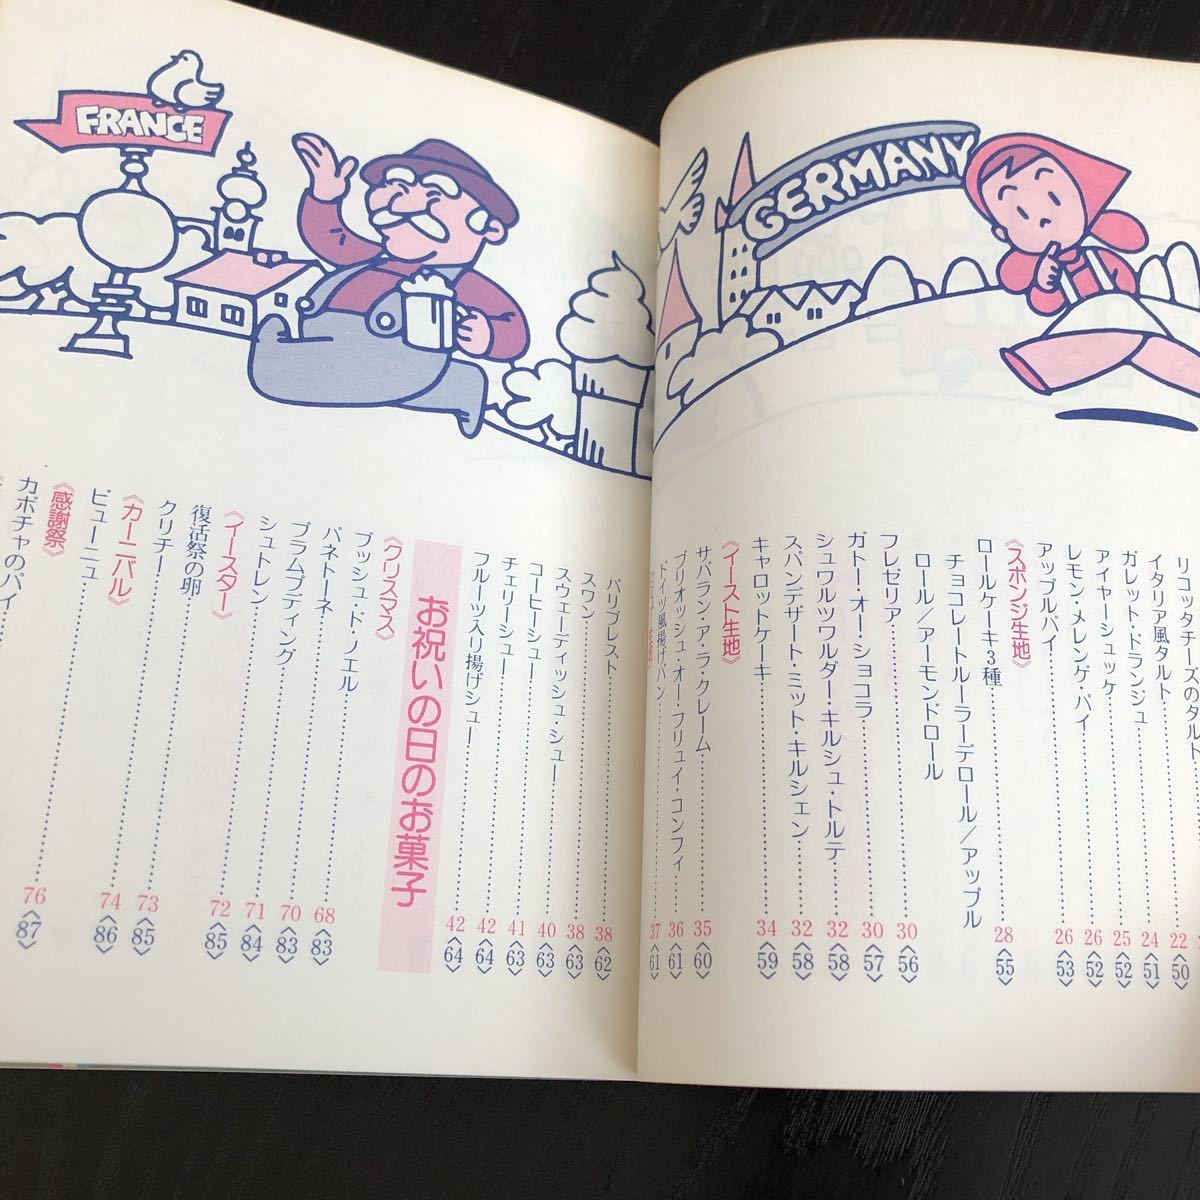 GERMANY
リコッタチーズのタルト
イタリア風タルト……22〈50〉
ガレット・ドランジュ……24〈51〉
アイヤーシュッケ……25〈52〉
レモン・メレンゲ・パイ……26〈52〉
アップルパイ……26〈53〉
《スポンジ生地》
ロールケーキ3種……28〈55〉
チョコレートルーラーデロール/アップル
ロール/アーモンドロール
フレゼリア……30〈56〉
ガトー・オー・ショコラ……30〈57〉
シュワルツワルダー・キルシュ・トルテ……32〈58〉
スパンデザート・ミット・キルシェン……32〈58〉
キャロットケーキ……34〈59〉
《イースト生地》
サバラン・ア・ラ・クレーム……35〈60〉
ブリオッシュ・オー・フリュイ・コンフィ……36〈61〉
ドイツ風揚げパン……37〈61〉
FRANCE
パリブレスト……38〈62〉
スワン……38〈63〉
スウェーディッシュ・シュー……40〈63〉
コーヒーシュー……40〈63〉
チェリーシュー……41〈63〉
フルーツ入り揚げシュー……42〈64〉
お祝いの日のお菓子
《クリスマス》
ブッシュ・ド・ノエル……68〈83〉
パネトーネ……68〈83〉
プラムプディング……70〈83〉
シュトレン……71〈84〉
《イースター》
復活祭の卵……72〈85〉
クリチー……73〈85〉
《カーニバル》
ビューニュ……74〈86〉
《感謝祭》
カボチャのパイ……76〈87〉